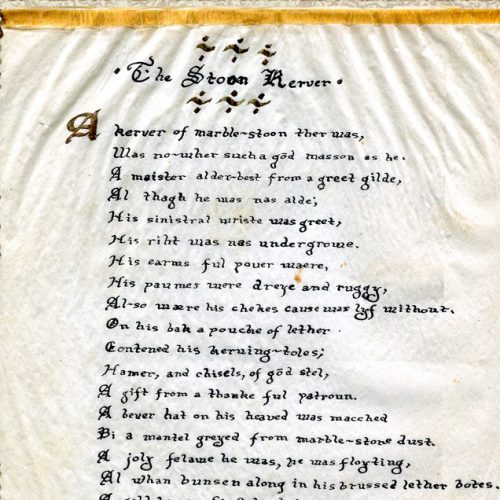 The Stoon Kerver
A kerver of marble-stoon ther was,
Was no-wher such a gōd masson as he.
A maister alder-best from a greet gilde,
Al thagh he was nas alde;
His sinistral wriste was greet,
His riht was nas undergrowe.
His earms ful pouer waere,
His paumes were dreye and ruggy,
Al-so wære his chekes cause was lyf without.
On his bak a pouche of lether
Contened his kerving-toles;
Hamer, and chisels, of gōd stel,
A gift from a thanke ful patroun.
A bever hat on his heaved was macched
Bi a mantel greyed from marble-stone dust.
A joly felawe he was, he was floyting,
Al whan bunsen along in his brussed lether botes.